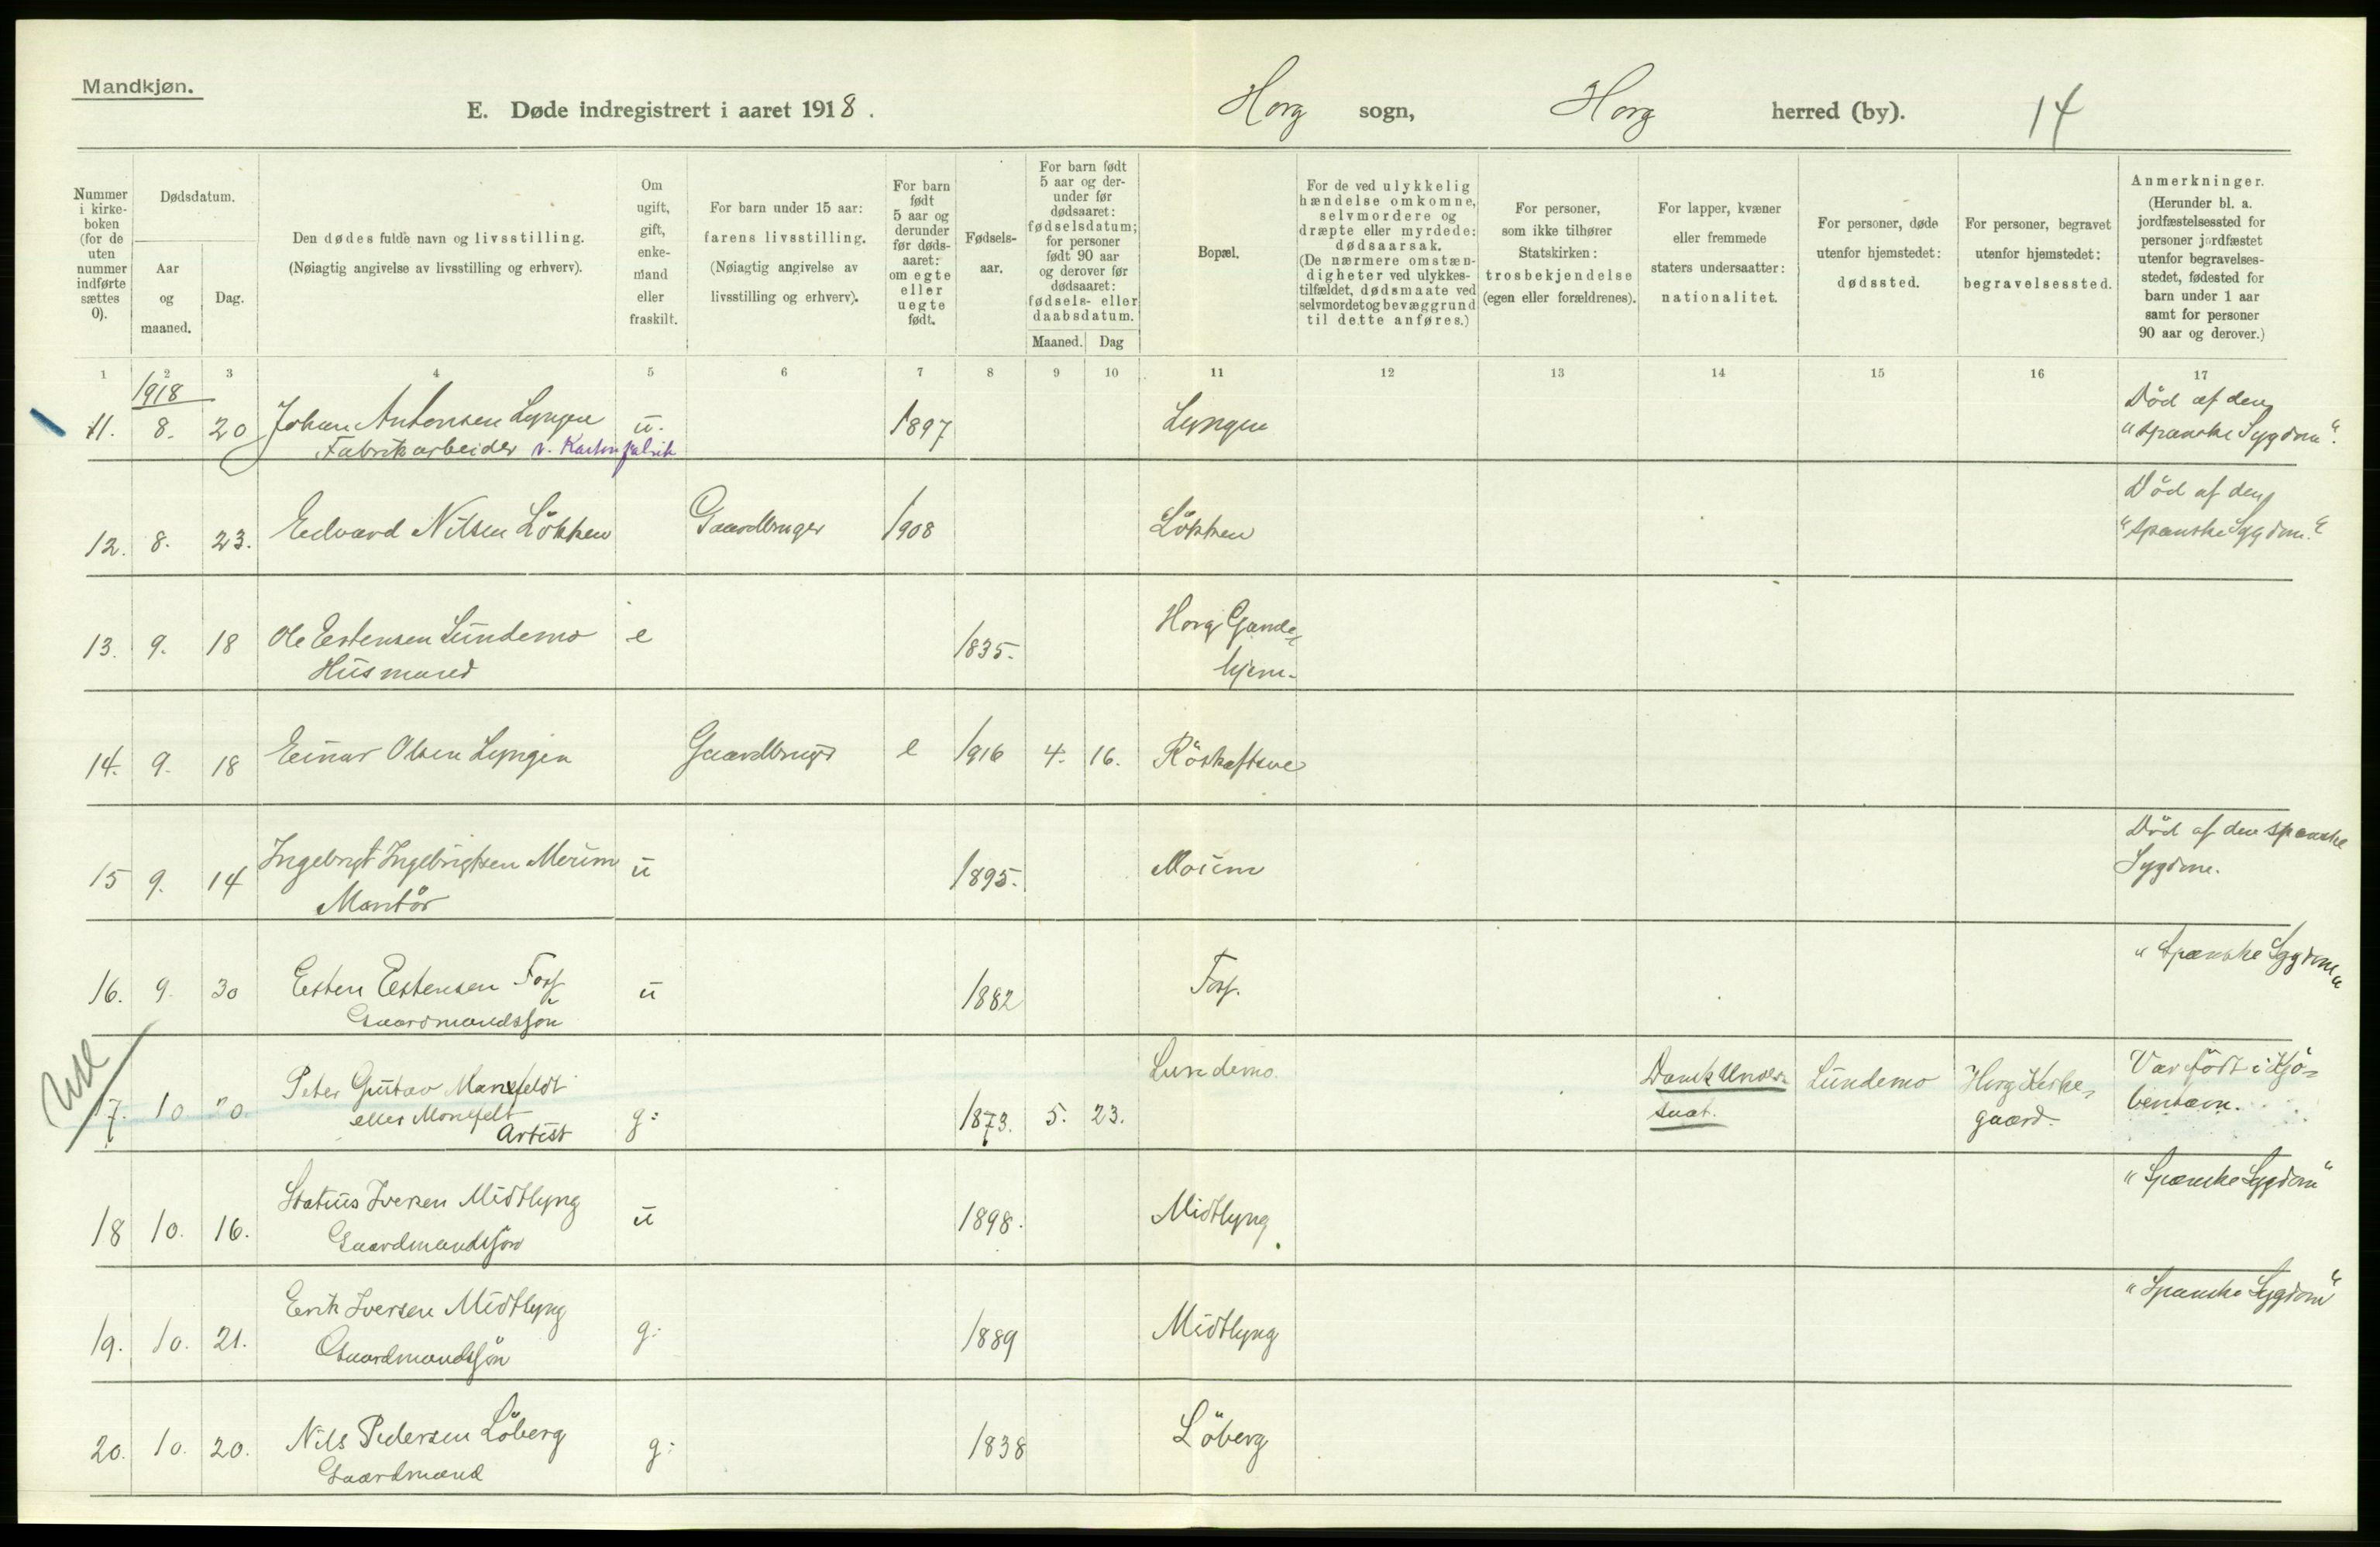 Mandkjøn.
E. Døde indregistrert i aaret 1918. Horg sogn, Horg herred (by). 14
Nummer i kirke-boken (for de uten nummer indførte sættes 0).
Dødsdatum.
Aar og maaned.
Dag.
Den dødes fulde navn og livsstilling.
(Nøiagtig angivelse av livsstilling og erhverv).
Om ugift, gift, enke-mand eller fraskilt.
For barn under 15 aar:
farens livsstilling.
(Nøiagtig angivelse av
livsstilling og erhverv).
For barn født 5 aar og derunder før døds-aaret: om egte eller uegte født.
Fødsels-aar.
For barn født 5 aar og der-under før dødsaaret: fødselsdatum; for personer født 90 aar og derover før dødsaaret: fødsels- eller daabsdatum.
Maaned. Dag
Bopæl.
For de ved ulykkelig hændelse omkomne, selvmordere og dræpte eller myrdede: dødsaarsak. (De nærmere omstæn-digheter ved ulykkes-tilfældet, dødsmaate ved selvmord og bevæggrund til dette anføres.)
For personer, som ikke tilhører Statskirken: trosbekjendelse (egen eller forældrenes).
For lapper, kvæner eller fremmede staters undersaatter: nationalitet.
For personer, døde utenfor hjemstedet: dødssted.
For personer, begravet utenfor hjemstedet: begravelsessted.
Anmerkninger. (Herunder bl. a. jordfæstelsessted for personer jordfæstet utenfor begravelses-stedet, fødested for barn under 1 aar samt for personer 90 aar og derover.)
1 2 3 4 5 6 7 8 9 10 11 12 13 14 15 16 17
1918
11. 8. 20 Johan Antonsen Lyngen u. 1897 Lyngen Død af den
Fabrikarbeider v. Kartonfabrik "spanske Sygdom".
12. 8. 23. Edvard Nilsen Lökken Gaardbruger 1908 Lökken Död af den
"spanske Sygdom."
13. 9. 18 Ole Estensen Lundemo e 1835. Horg Gamle=
Husmand hjem.
14. 9. 18 Einar Olsen Lyngen Gaardbruger e 1916 4. 16. Röskaftsve
15 9. 14 Ingebrigt Ingebrigtsen Moum u 1895. Moum Död af den spanske
Montör Sygdom.
16. 9. 30 Esten Estensen Foss u 1882 Foss. "Spanske Sygdom"
Gaardmandssön
17. 10 20 Peter Gustav Manefeldt g: 1873. 5. 23. Lundemo. Dansk Under= Lundemo Horg Kirke= Var födt i Kjö=
eller Monefelt saat. gaard. benhavn.
Artist
18 10. 16. Statius Iversen Midtlyng u 1898. Midtlyng "Spanske Sygdom"
Gaardmandssön
19. 10. 21. Erik Iversen Midtlyng g: 1889 Midtlyng "Spanske Sygdom"
Gaardmandssön
20. 10. 20. Nils Pedersen Löberg g: 1838 Löberg
Gaardmand